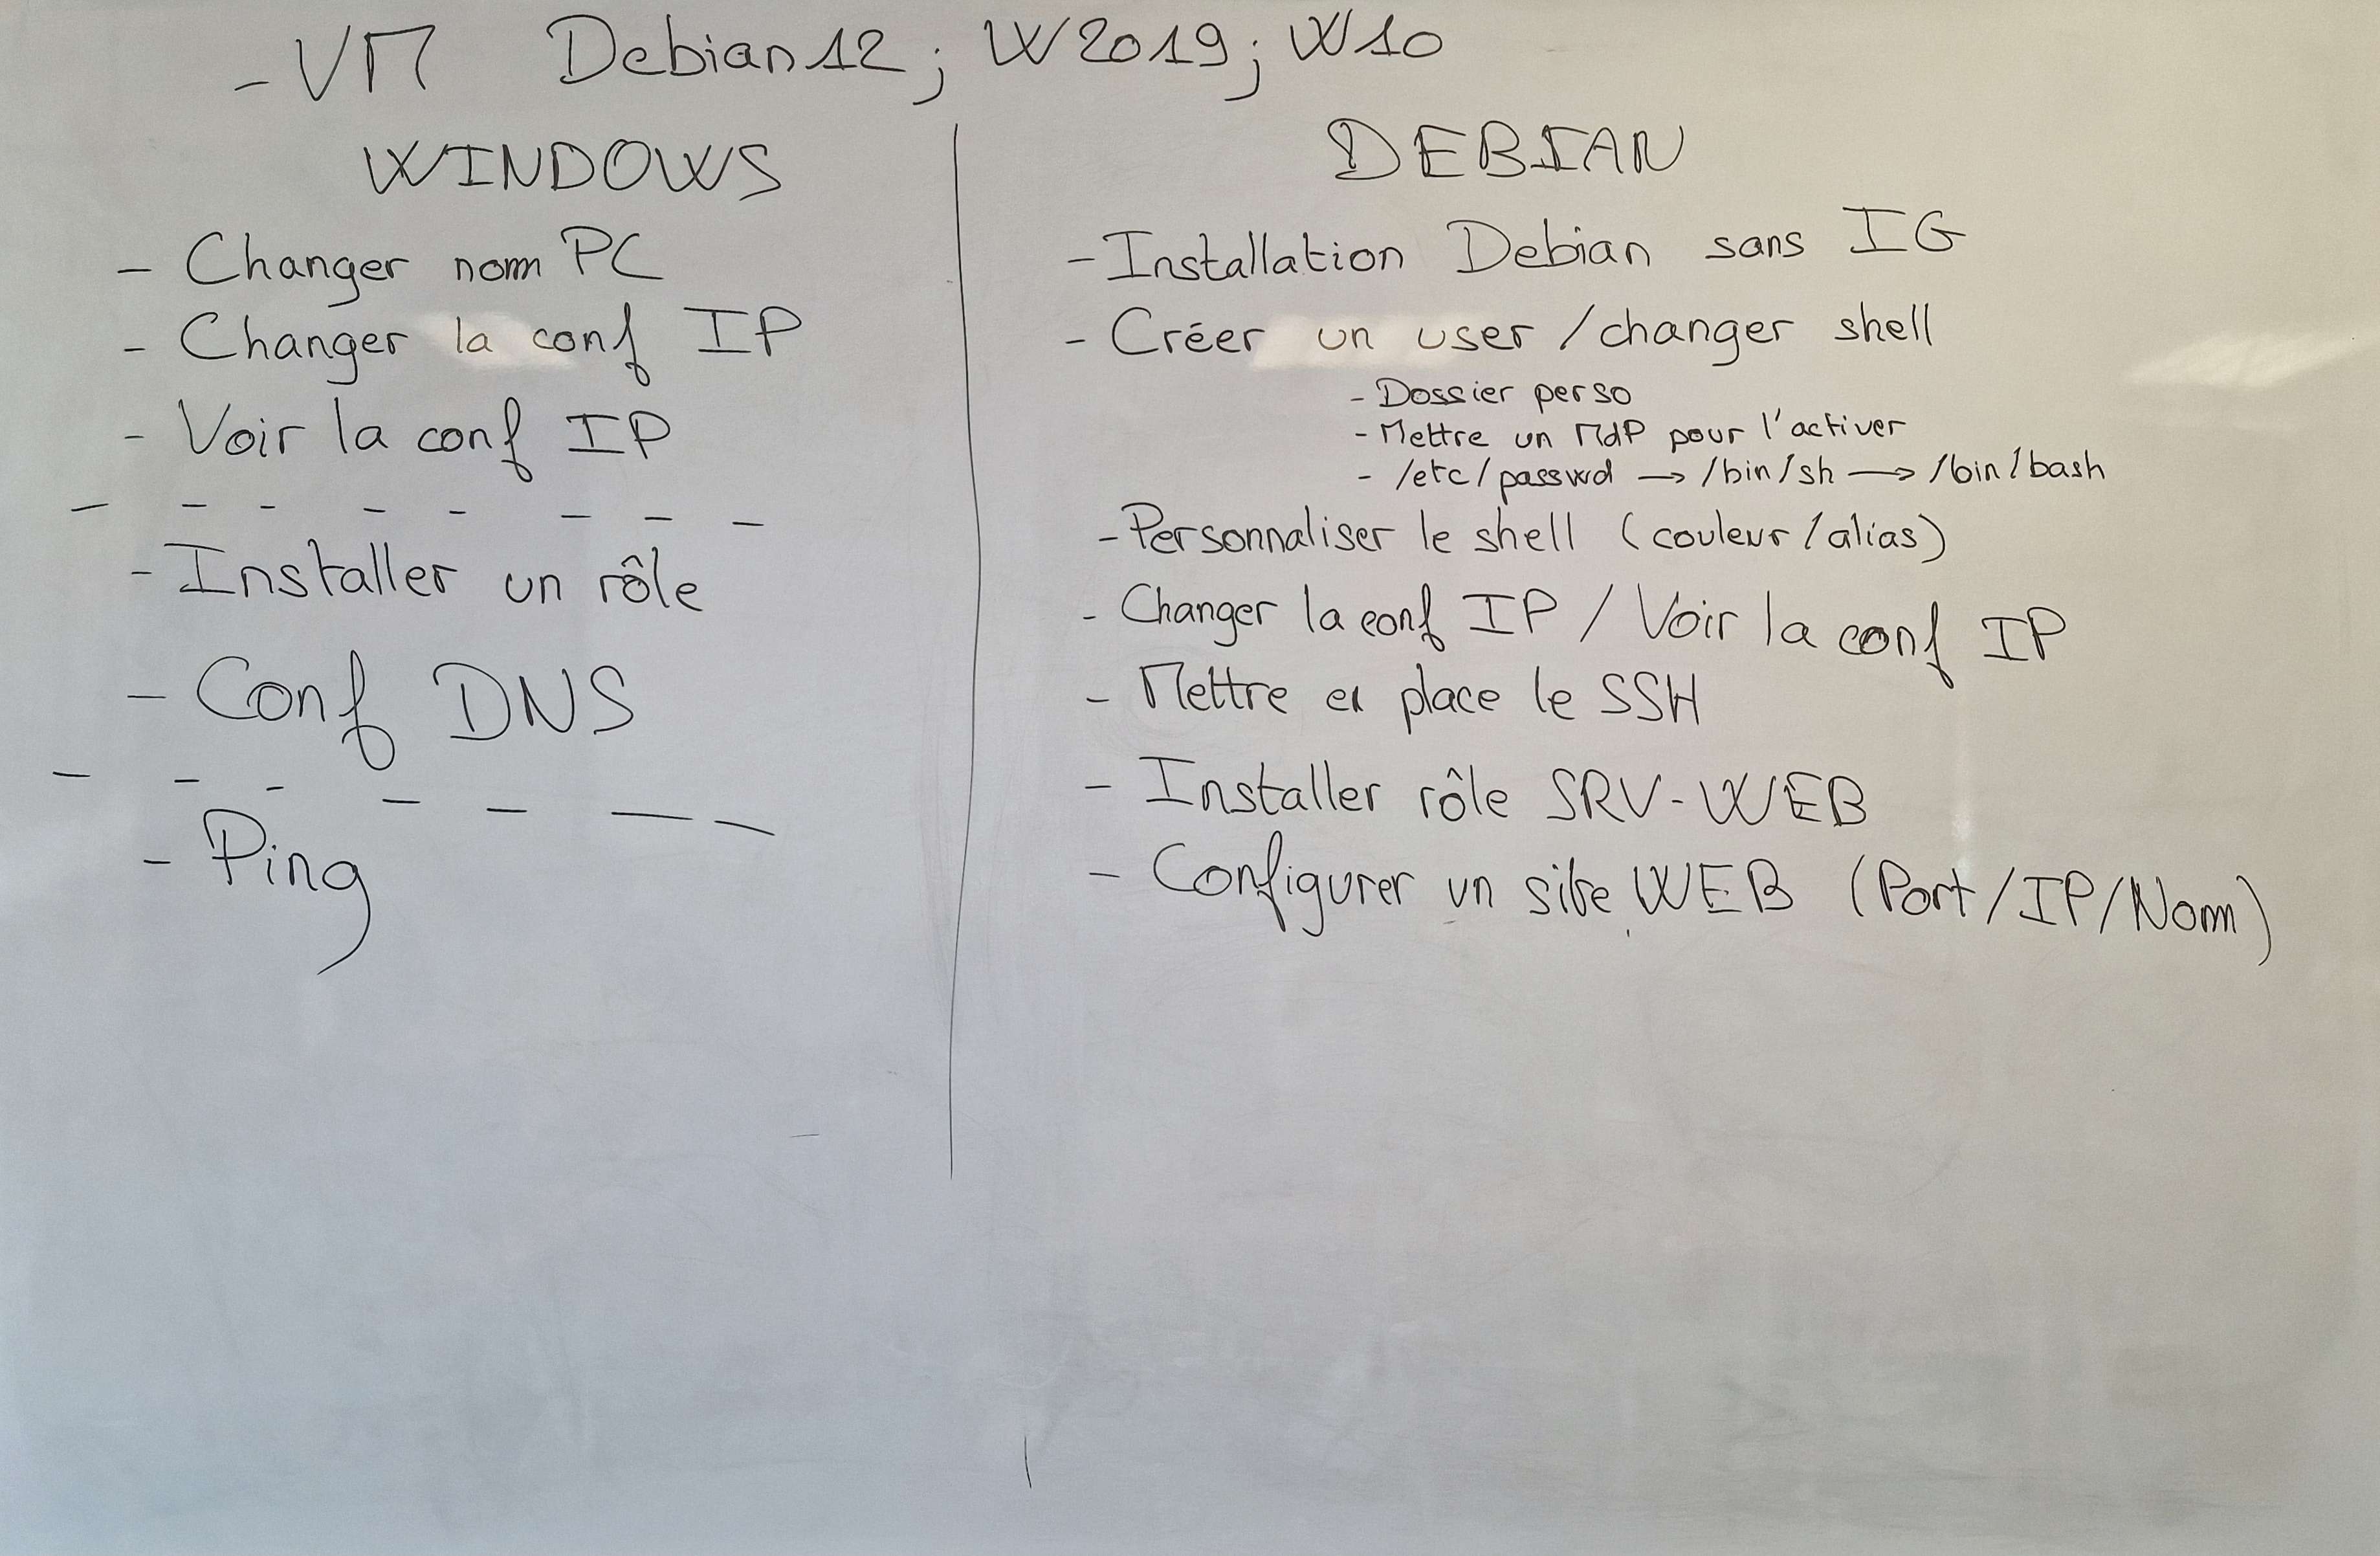 - VM Debian 12 ; W2019 ; W10
WINDOWS
- Changer nom PC
- Changer la conf IP
- Voir la conf IP
- - - - - - - -
- Installer un rôle
- Conf DNS
- - - - - - -
- Ping
DEBIAN
- Installation Debian sans IG
- Créer un user / changer shell
- Dossier perso
- Mettre un MdP pour l'activer
- /etc/passwd → /bin/sh → /bin/bash
- Personnaliser le shell (couleur / alias)
- Changer la conf IP / Voir la conf IP
- Mettre en place le SSH
- Installer rôle SRV-WEB
- Configurer un site WEB (Port/IP/Nom)